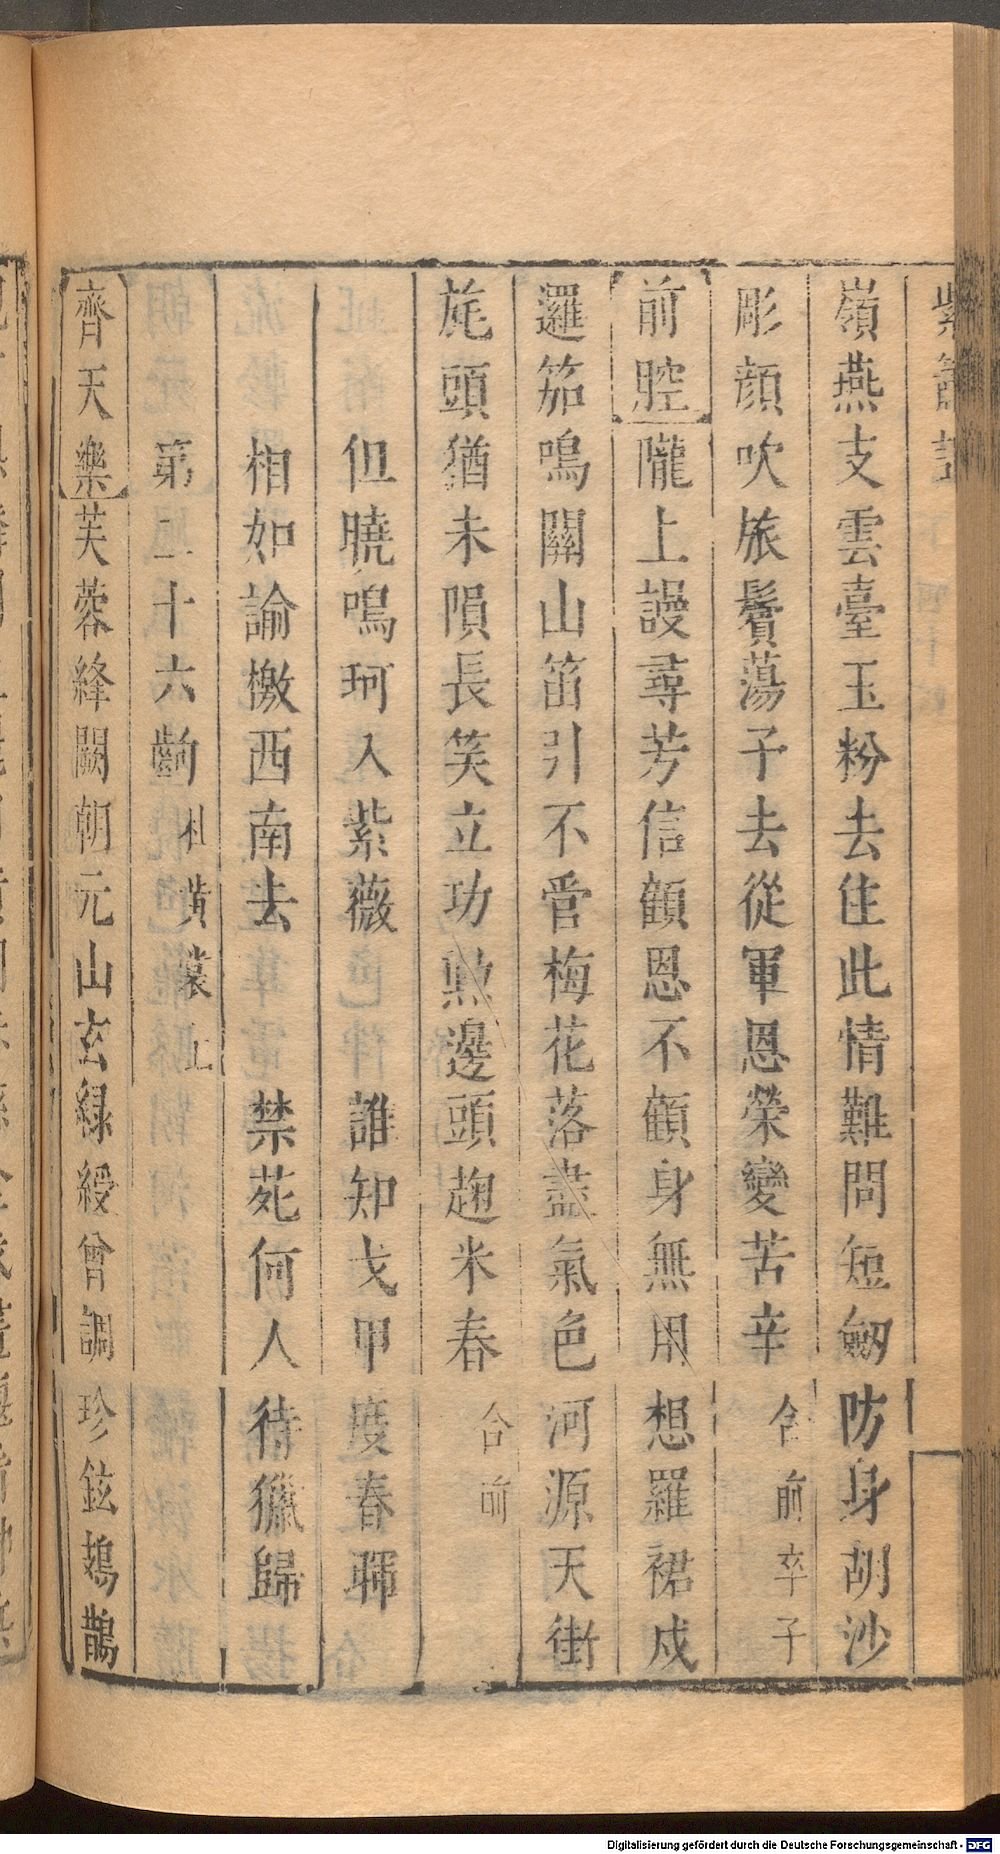 紫簫記
嶺燕支雲臺玉粉去住此情難問短劔防身胡沙
彫顔吹旅鬢蕩子去從軍恩榮變苦辛合前卒子
前腔隴上謾尋芳信顧恩不顧身無用想羅裙戍
邏笳鳴關山笛引不管梅花落盡氣色河源天街
旄頭猶未隕長笑立功勲邊頭趜米春合前
但曉鳴珂入紫薇 誰知戈甲度春暉
相如諭檄西南去 禁苑何人待獵歸
第二十六齣 杜黄裳上
齊天樂芙蓉絳闕朝元山玄緑綬曾調珍鉉鳷鵲
Digitalisierung gefördert durch die Deutsche Forschungsgemeinschaft - DFG